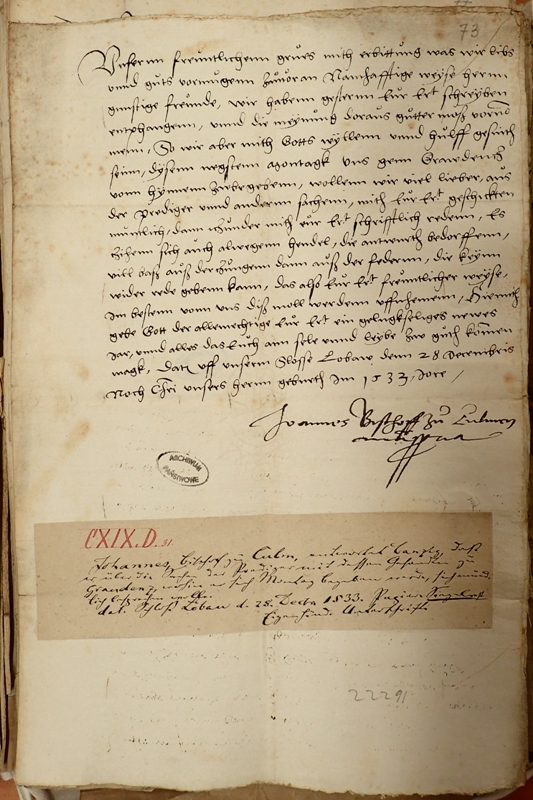 73
Unsernn freuntlichenn grues mith erbittung was wir libs
unnd guts vormugenn zuuorann Namhafftige weyse hernn
gunstige freunde, wir habenn gesternn Eur Ert schreyben
entphangenn, unnd die meynung doraus gutter moß vorno
menn, So wir aber mith Gotts wyllenn unnd hulff gesinth
seinn, dysenn negstenn montagk uns genn Graudentz
vonn hynnenn zubegebenn, wollenn wir viel lieber, aus
der prediger unnd andernn sachenn, mith Eur Ert geschickten
muntlich, dann itzunder mith Eur Ert schrifftlich redenn, Es
zihenn sich auch alwegenn hendel, die antworth bedorffenn,
vill baß auß der zungenn dann auß der federnn, die keynn
wider rede gebenn kann, das also Eur Ert freuntlicher weyse,
Im bestenn vonn uns diß moll werdenn uffnehmenn, Hiemith
gebe Gott der allmechtige Eur Ert ein gelugkseliges newes
Jar, unnd alles das Euch ann sele unnd leybe zw guth kommen
magk, Datz uff unserm Slosse Lobaw denn 28 Decembris
Noch Cri unsers hernn geburth Im 1533, Jore,
Joannes Bischoff zu Culmen
ARCHIWUM
PAŃSTWOWE
CXIX.D.31.
Johannes, Bischof zu Culm, antwortet Danzig, daß
er über die Sache des Prediger mit dessen Gesandten zu
Graudenz, wohin er sich Montag begeben werde, sich münd
lich besprechen wolle.
dat. Schloß Löbau d. 28. Decbr 1533. Papier
Eigenhänd. Unterschrift
22291